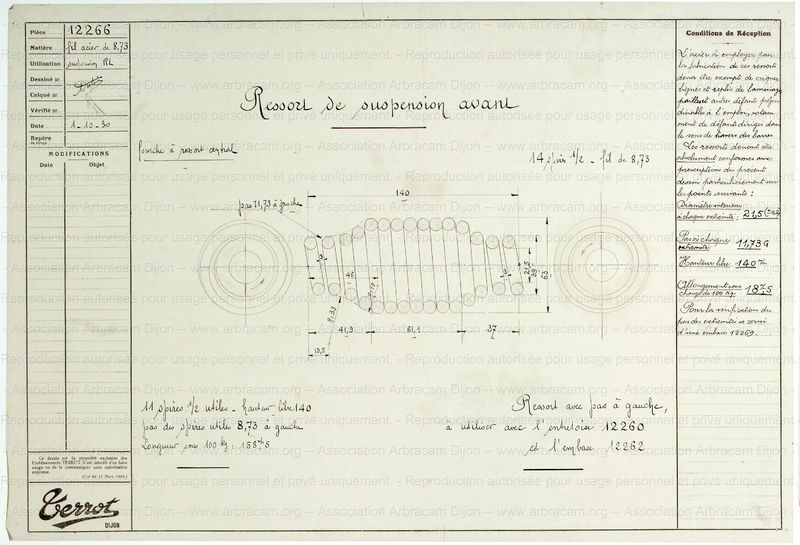 Pièce 12266
Matière fil acier de 8,73
Utilisation suspension RL
Dessiné par
Calqué par
Vérifié par
Date 1-10-30
Repère
MODIFICATIONS
Date Objet
Ressort de suspension avant
fourche à ressort central
14 spires 1/2 - fil de 8,73
pas 11,73 à gauche
140
46
21,5
39
63
41,3
61,1
37
13,5
11 spires 1/2 utiles - hauteur libre 140
pas des spires utiles 8,73 à gauche
Longueur sous 100 kg : 158,5
Ressort avec pas à gauche,
à utiliser avec l'entretoise 12260
et l'embase 12262
Conditions de Réception
L'acier à employer pour
la fabrication de ces ressorts
devra être exempt de criques,
lignes et replis de laminage,
pailles et autres défauts
à l'emploi, notam
ment de défauts dirigés dans
le sens de
Ces ressorts devront être
absolument conformes aux
prescriptions du présent
dessin particulièrement sur
les points suivants :
Diamètre intérieur
à chaque extrémité : 21,5
Pas à chaque
extrémité 11,73 G
Hauteur libre 140
Allongement sous
charge de 100 kg : 18,5
Pour la vérification du
pas des extrémités se servir
d'une embase 12269.
Ce dessin est la propriété exclusive des
Établissements TERROT. Il est interdit d'en faire
usage ou de le communiquer sans autorisation
expresse.
(Loi du 11 Mars 1902.)
Terrot
DIJON
Association Arbracam Dijon – www.arbracam.org – Reproduction autorisée pour usage personnel et privé uniquement.